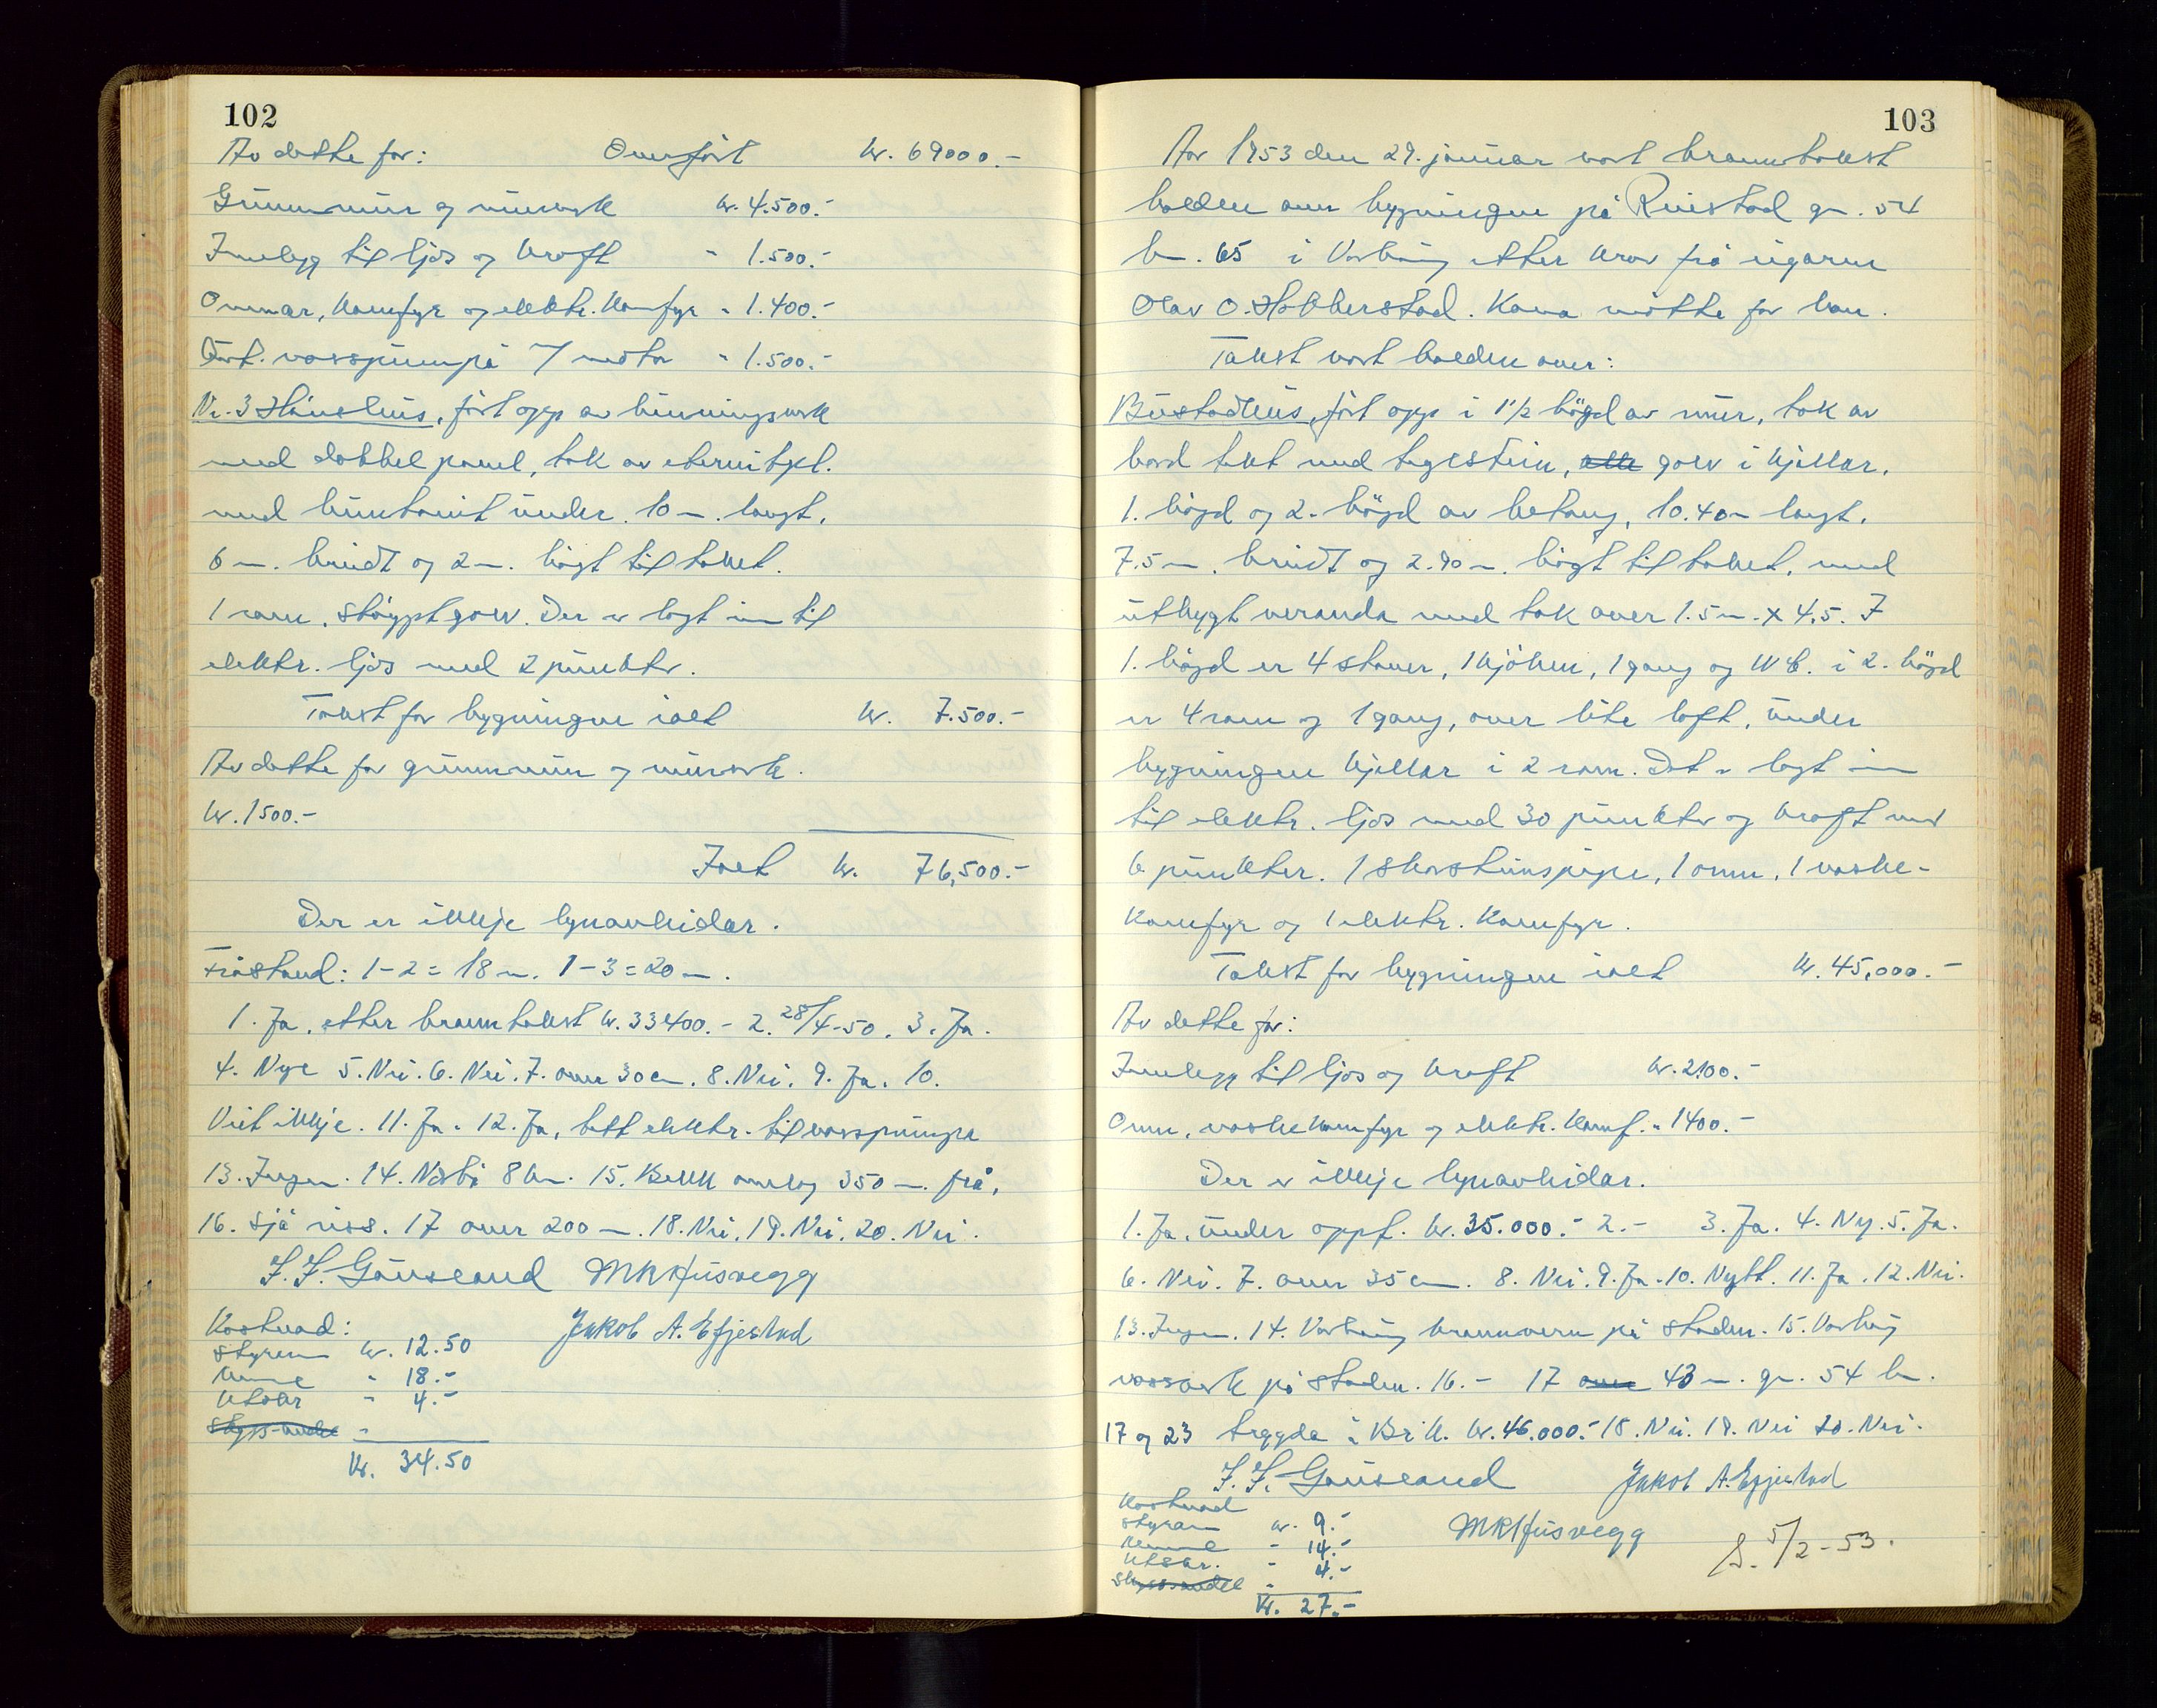 102
Av dette for: Overført kr. 69000.-
Grunnmur og murverk kr. 4.500.-
Innlegg til ljos og kraft " 1.500.-
Omnar, komfyr og elektr. komfyr " 1.400.-
vasspumpe m/ motor " 1.500.-
Nr. 3 Hønsehus, ført opp av bindingsverk
med dobbel panel, tak av eternitpl.
med huntonit under. 10 m. langt,
6 m. breidt og 2 m. høgt til taket.
1 rom, støypt golv. Der er lagt inn til
elektr. ljos med 2 punkter.
Takst for bygningen ialt kr. 7.500.-
Av dette for grunnmur og murverk.
kr. 1500.-
Ialt kr. 76,500.-
Der er ikkje lynavleidar.
Fråstand: 1-2 = 18 m. 1-3 = 20 m.
1. Ja, etter branntakst kr. 33400.- 2. 28/4-50. 3. Ja.
4. Nye 5. Nei. 6. Nei. 7. over 30 cm. 8. Nei. 9. Ja. 10.
Veit ikkje. 11. Ja. 12. Ja, tett elektr. til vasspumpe
13. Ingen. 14. Nærbø 8 km. 15. Bekk omlag 350 m. frå.
16. Sjå riss. 17 over 200 m. 18. Nei. 19. Nei. 20. Nei.
J. J. Gausland M K Husvegg
Jakob A. Efjestad
Kostnad:
Styraren kr. 12.50
Menne " 18.-
Utskr " 4.-
Skyss-andel "
Kr. 34.50
103
År 1953 den 29. januar vart branntakst
halden over bygningen på Reistad gn. 54
bn. 65 i Varhaug etter krav frå eigaren
Olav O. Hobberstad. Kona møtte for han.
Takst vart halden over:
Bustadhus, ført opp i 1 1/2 høgd av mur, tak av
bord tekt med teglstein, alle golv i kjellar,
1. høgd og 2. høgd av betong, 10.40 m langt,
7.5 m. breidt og 2.90 m. høgt til taket, med
utbygt veranda med tak over 1.5 m. x 4.5. I
1. høgd er 4 stover, 1 kjøken, 1 gang og W C. i 2. høgd
er 4 rom og 1 gang, over lite loft, under
bygningen kjellar i 2 rom. Det er lagt inn
til elektr. ljos med 30 punkter og kraft med
6 punkter. 1 skorsteinspipe, 1 omn, 1 vaske-
komfyr og 1 elektr. komfyr.
Takst for bygningen ialt kr. 45.000.-
Av dette for:
Innlegg til ljos og kraft kr. 2100.-
Omn, vaskekomfyr og elektr. komf. " 1400.-
Der er ikkje lynavleidar.
1. Ja, under oppf. kr. 35.000.- 2.- 3. Ja. 4. Ny. 5. Ja.
6. Nei. 7. over 35 cm. 8. Nei. 9. Ja. 10. Nytt. 11. Ja. 12. Nei.
13. Ingen. 14. Varhaug brannvern på staden. 15. Varhaug
vassverk på staden. 16.- 17 over 43 m. gn. 54 bn.
17 og 23 trygda i Br.k. kr. 46.000.- 18. Nei. 19. Nei 20. Nei.
J. J. Gausland Jakob A. Efjestad
M K Husvegg
Kostnad
Styraren kr. 9.-
Menne " 14.-
Utskr. " 4.-
Skyss-andel "
Kr. 27.-
S. 5/2-53.